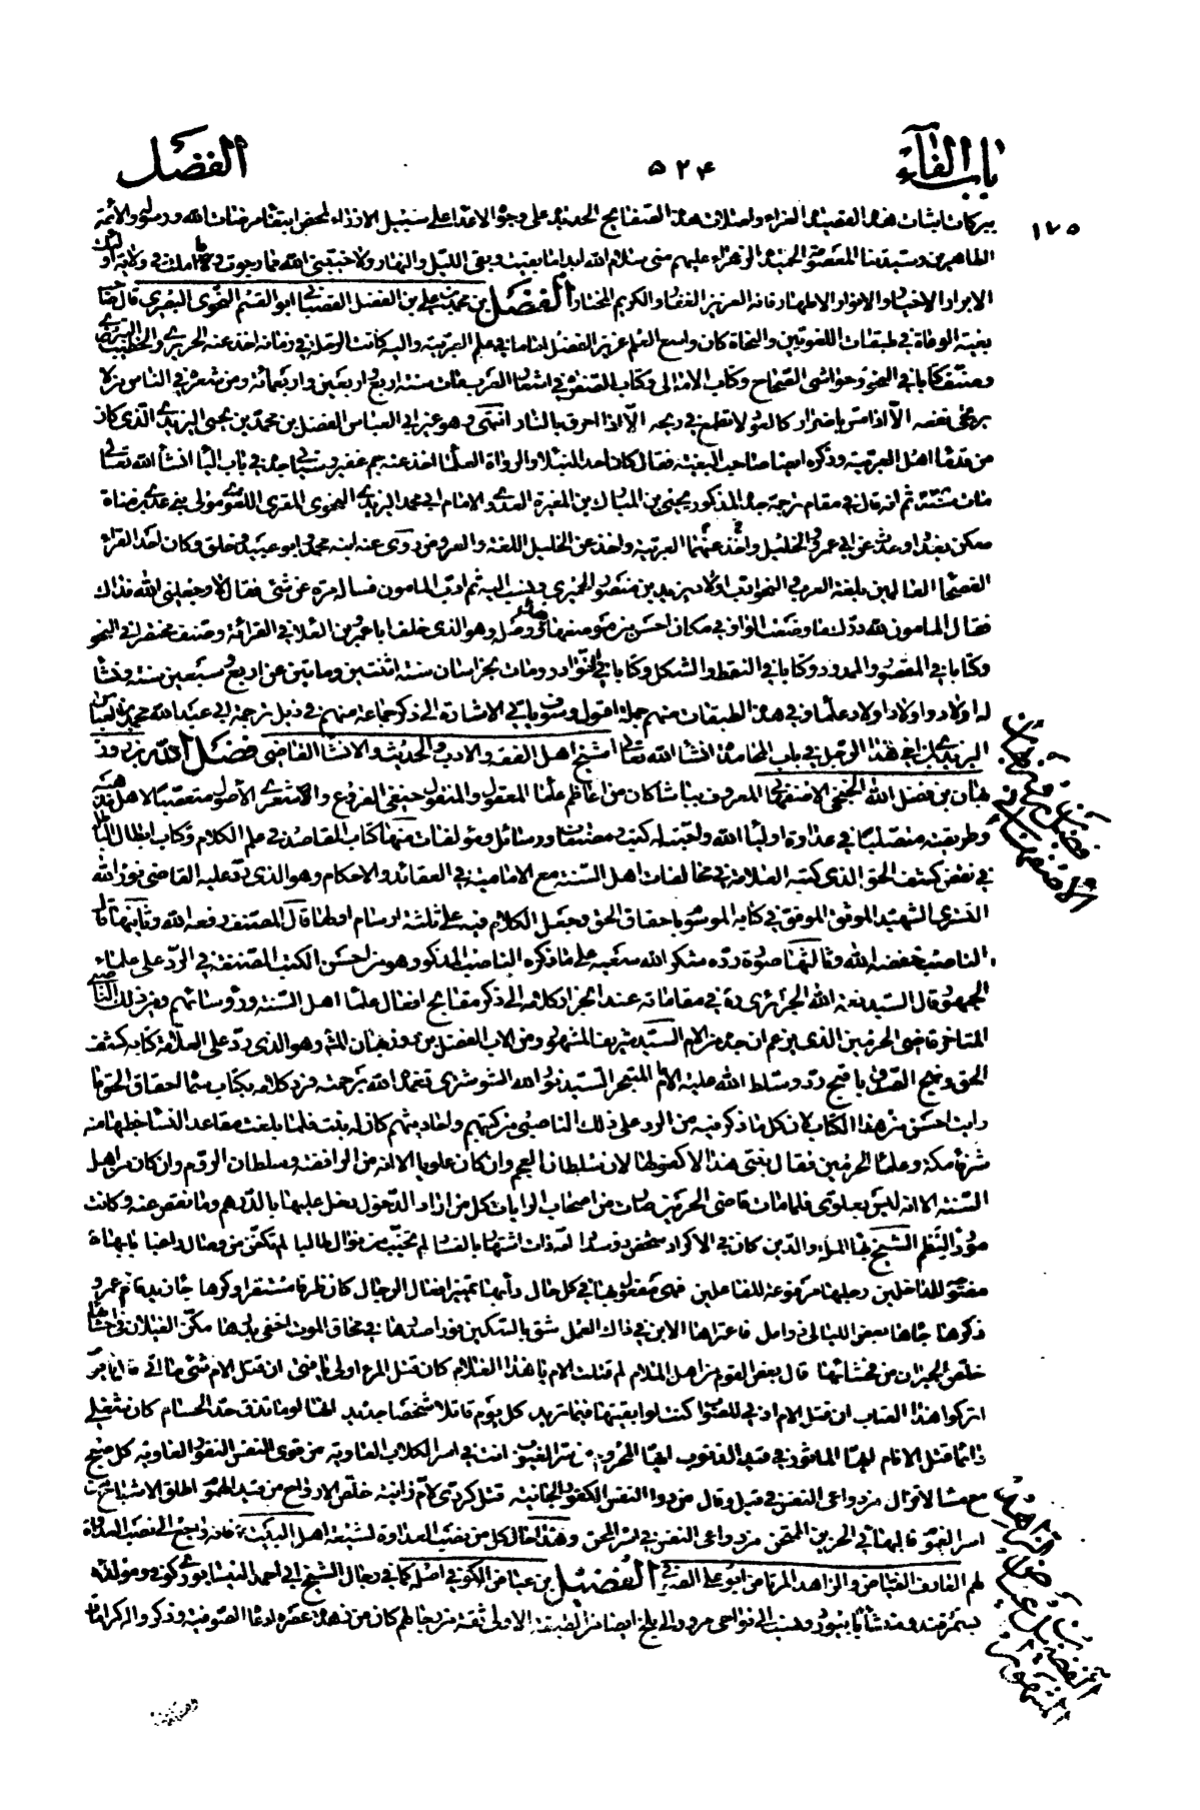 باب الفآء ٥٢٤ الفضل
١٧٥
ببركات ابثات هذه القصيدة الغراء و على وجوه الاعداء على سبيل الازراء لمحض ابتغاء مرضات الله ورسوله والائمة
الطاهرين وسيدتنا المعصومة الحميدة الزهراء عليهم منى سلام الله ابدا ما بقيت وبقى الليل والنهار ولا خيبنى الله فيما رجوت
الابرار والاخيار والانوار الاطهار فانه العزيز الغفار والكريم المختار الفضل بن محمد بن على بن الفضل القصبانى ابو القسم النحوى البصرى قال صاحب
بغية الوعاة فى طبقات اللغويين والنحاة كان واسع العلم غزير الفضل اماما فى علم العربية واليه كانت الرحلة فى زمانه اخذ عنه الحريرى والخطيب التبريزى
وصنف كتابا فى النحو وحواشى الصحاح وكتاب الامالى وكتاب الصفوة فى اشعار العرب مات سنة اربع واربعين واربعمائة ومن شعره فى الناس من لا
يرتجى نفعه الا اذا مس باضرار كالعود لا تطمع فى ريحه الا اذا احرق بالنار انتهى وهو غير ابى العباس الفضل بن محمد بن يحيى اليزيدى الذى كان
من قدماء اهل العربية وذكره ايضا صاحب البغية فقال كان احد النبلاء والرواة العلماء اخذ عنه جم غفير وسيأتى جده فى باب الياء انشاء الله تعالى
مات سنة ثم انه قال فى مقام ترجمة جده المذكور يحيى بن المبارك بن المغيرة العدوى الامام ابى محمد اليزيدى النحوى المقرى اللغوى مولى بنى عدى بن مناة
سكن بغداد وحدث عن ابى عمرو والخليل واخذ عنهما العربية واخذ عن الخليل اللغة والعروض روى عنه ابنه محمد وابو عبيد وخلق وكان احد القراء
الفصحاء العالمين بلغة العرب والنحو ادب اولاد يزيد بن منصور الحميرى ونسب اليه ثم ادب المامون فساله مرة عن شئ فقال لا وجعلنى الله فداك
فقال المامون لله درك ما وضعت الواو فى مكان احسن من موضعها ووصله وهو الذى خلف ابا عمرو بن العلاء فى القرائة وصنف مختصرا فى النحو
وكتابا فى المقصور والممدود وكتابا فى النقط والشكل وكتابا فى النوادر ومات بخراسان سنة اثنتين ومأتين عن اربع وسبعين سنة وخلف
له اولاد واولاد اولاد علماء فى هذه الطبقات منهم جملة اقول وسوف ياتى الاشارة الى ذكر جماعة منهم فى ذيل ترجمة ابى عبد الله محمد بن العباس
اليزيدى فى باب المحامدة انشاء الله تعالى الشيخ اهل الفقه والادب والحديث والانشاء القاضى فضل الله بن روز
بهان بن فضل الله الخنجى الاصفهانى المعروف بپاشا كان من اعاظم علماء المعقول والمنقول حنفى الفروع والاشعرى الاصول متعصبا لاهل مذهبه
وطريقته متصلبا فى عداوة اولياء الله ولعنته له كتب ومصنفات ورسائل ومؤلفات منها كتاب المقاصد فى علم الكلام وكتاب ابطال الباطل
فى نقض كشف الحق الذى كتبه العلامة فى مخالفات اهل السنة مع الامامية فى العقائد والاحكام وهو الذى رد عليه القاضى نور الله
التسترى الشهيد الموفق فى كتابه الموسوم باحقاق الحق وجعل الكلام فيه على ثلثة اقسام اولها قال المصنف رفعه الله وثانيها قال
الناصب خفضه الله وثالثها صورة رده شكر الله سعيه على ما ذكره الناصب المذكور وهو من احسن الكتب المصنفة فى الرد على علماء
الجمهور قال السيد نعمة الله الجزائرى ره فى مقاماته عند انجرار كلامه الى ذكر مقابح افعال علماء اهل السنة ورؤسائهم ومن ذلك الناصبى
المتاخر قاضى الحرمين الذى يزعم ان جده من الام السيد شريف المشهور ومن الاب الفضل بن روزبهان وهو الذى رد على العلامة كتابه كشف
الحق ونهج الصدق باقبح رد وسلط الله عليه الامام المتبحر السيد نور الله الشوشترى تغمده الله برحمته فرد كلامه بكتاب سماه احقاق الحق ما
رايت احسن من هذا الكتاب لان كل ما ذكر فيه من الرد على ذلك الناصبى من كتبهم واحاديثهم كان له بنت فلما بلغت مقاعد النساء خطبها منه
شرفاء مكة وعلماء الحرمين فقال بنتى هذه لا كفو لها لان سلطان العجم وان كان علويا الا انه من الرافضة وسلطان الروم وان كان من اهل
السنة الا انه ليس بعلوى فلما مات قاضى الحرمين صارت من اصحاب الرايات كل من اراد الدخول دخل عليها بالدرهم وما نقص عنه وكانت
مورد النظم الشيخ بهاء الملة والدين كان فى الاكراد شخص ذو سداد امه ذات اشتهار بالفساد لم تخيب من نوال طالبا لم تكفف من وصال راغبا بابها
مفتوح للداخلين رجلها مرفوعة للفاعلين فهى مفعول بها فى كل حال وأبها تمييز افعال الرجال كان ظرفا مستقرا وكرها جاء زيد قام عمرو
ذكرها جاءها بعض الليالى ذو امل فاعتراها الابن فى ذاك العمل شق بالسكين فورا صدرها فى محاق الموت اخفى بدرها مكن الغيلان فى احشائها
خلص الجيران من فحشائها قال بعض القوم من اهل الملام لم قتلت الام يا هذا الغلام كان قتل المرء اولى يا فتى ان قتل الام شئ ما اتى قال يا قوم
اتركوا هذا العتاب ان قتل الام ادنى للصواب كنت لو ابقيتها فيما تريد كل يوم قاتلا شخصا جديد انها لو ما تذق حد الحسام كان شغلى
دائما قتل الانام ايها الماسور فى قيد الذنوب ايها المحروم من سر الغيوب انت فى اسر الكلاب العاوية من قوى النفس الكفور الغاوية كل صبح
مع مساء لا تزال مع دواعى النفس فى قيل وقال من دواء النفس الكفور الجانية قتل كردى لام زانية خلص الارواح من قيد الهموم اطلق الاشباح من
اسر الغموم الحزين الممتحن من دواعى النفس فى اسر المحن وهذا حال كل من نصب العداوة لشيعة اهل البيت فانه راجع الى نصب العداوة
لهم العارف الفياض والزاهد المرتاض ابو على الصوفى الفضيل بن عياض الكوفى اصله كما فى رجال الشيخ ابى احمد النيسابورى كوفى ومولده
بسمرقند ومنشأه بابيورد ونسب الى نواحى مرو والى بلخ ايضا من الطبقة الاولى ثقة من رجالهم كان من زهاد عصره وعاء الصوفية وذكروا له كرامات
فضل بن روزبهان الاصفهانى
الفضيل بن عياض الزاهد المشهور